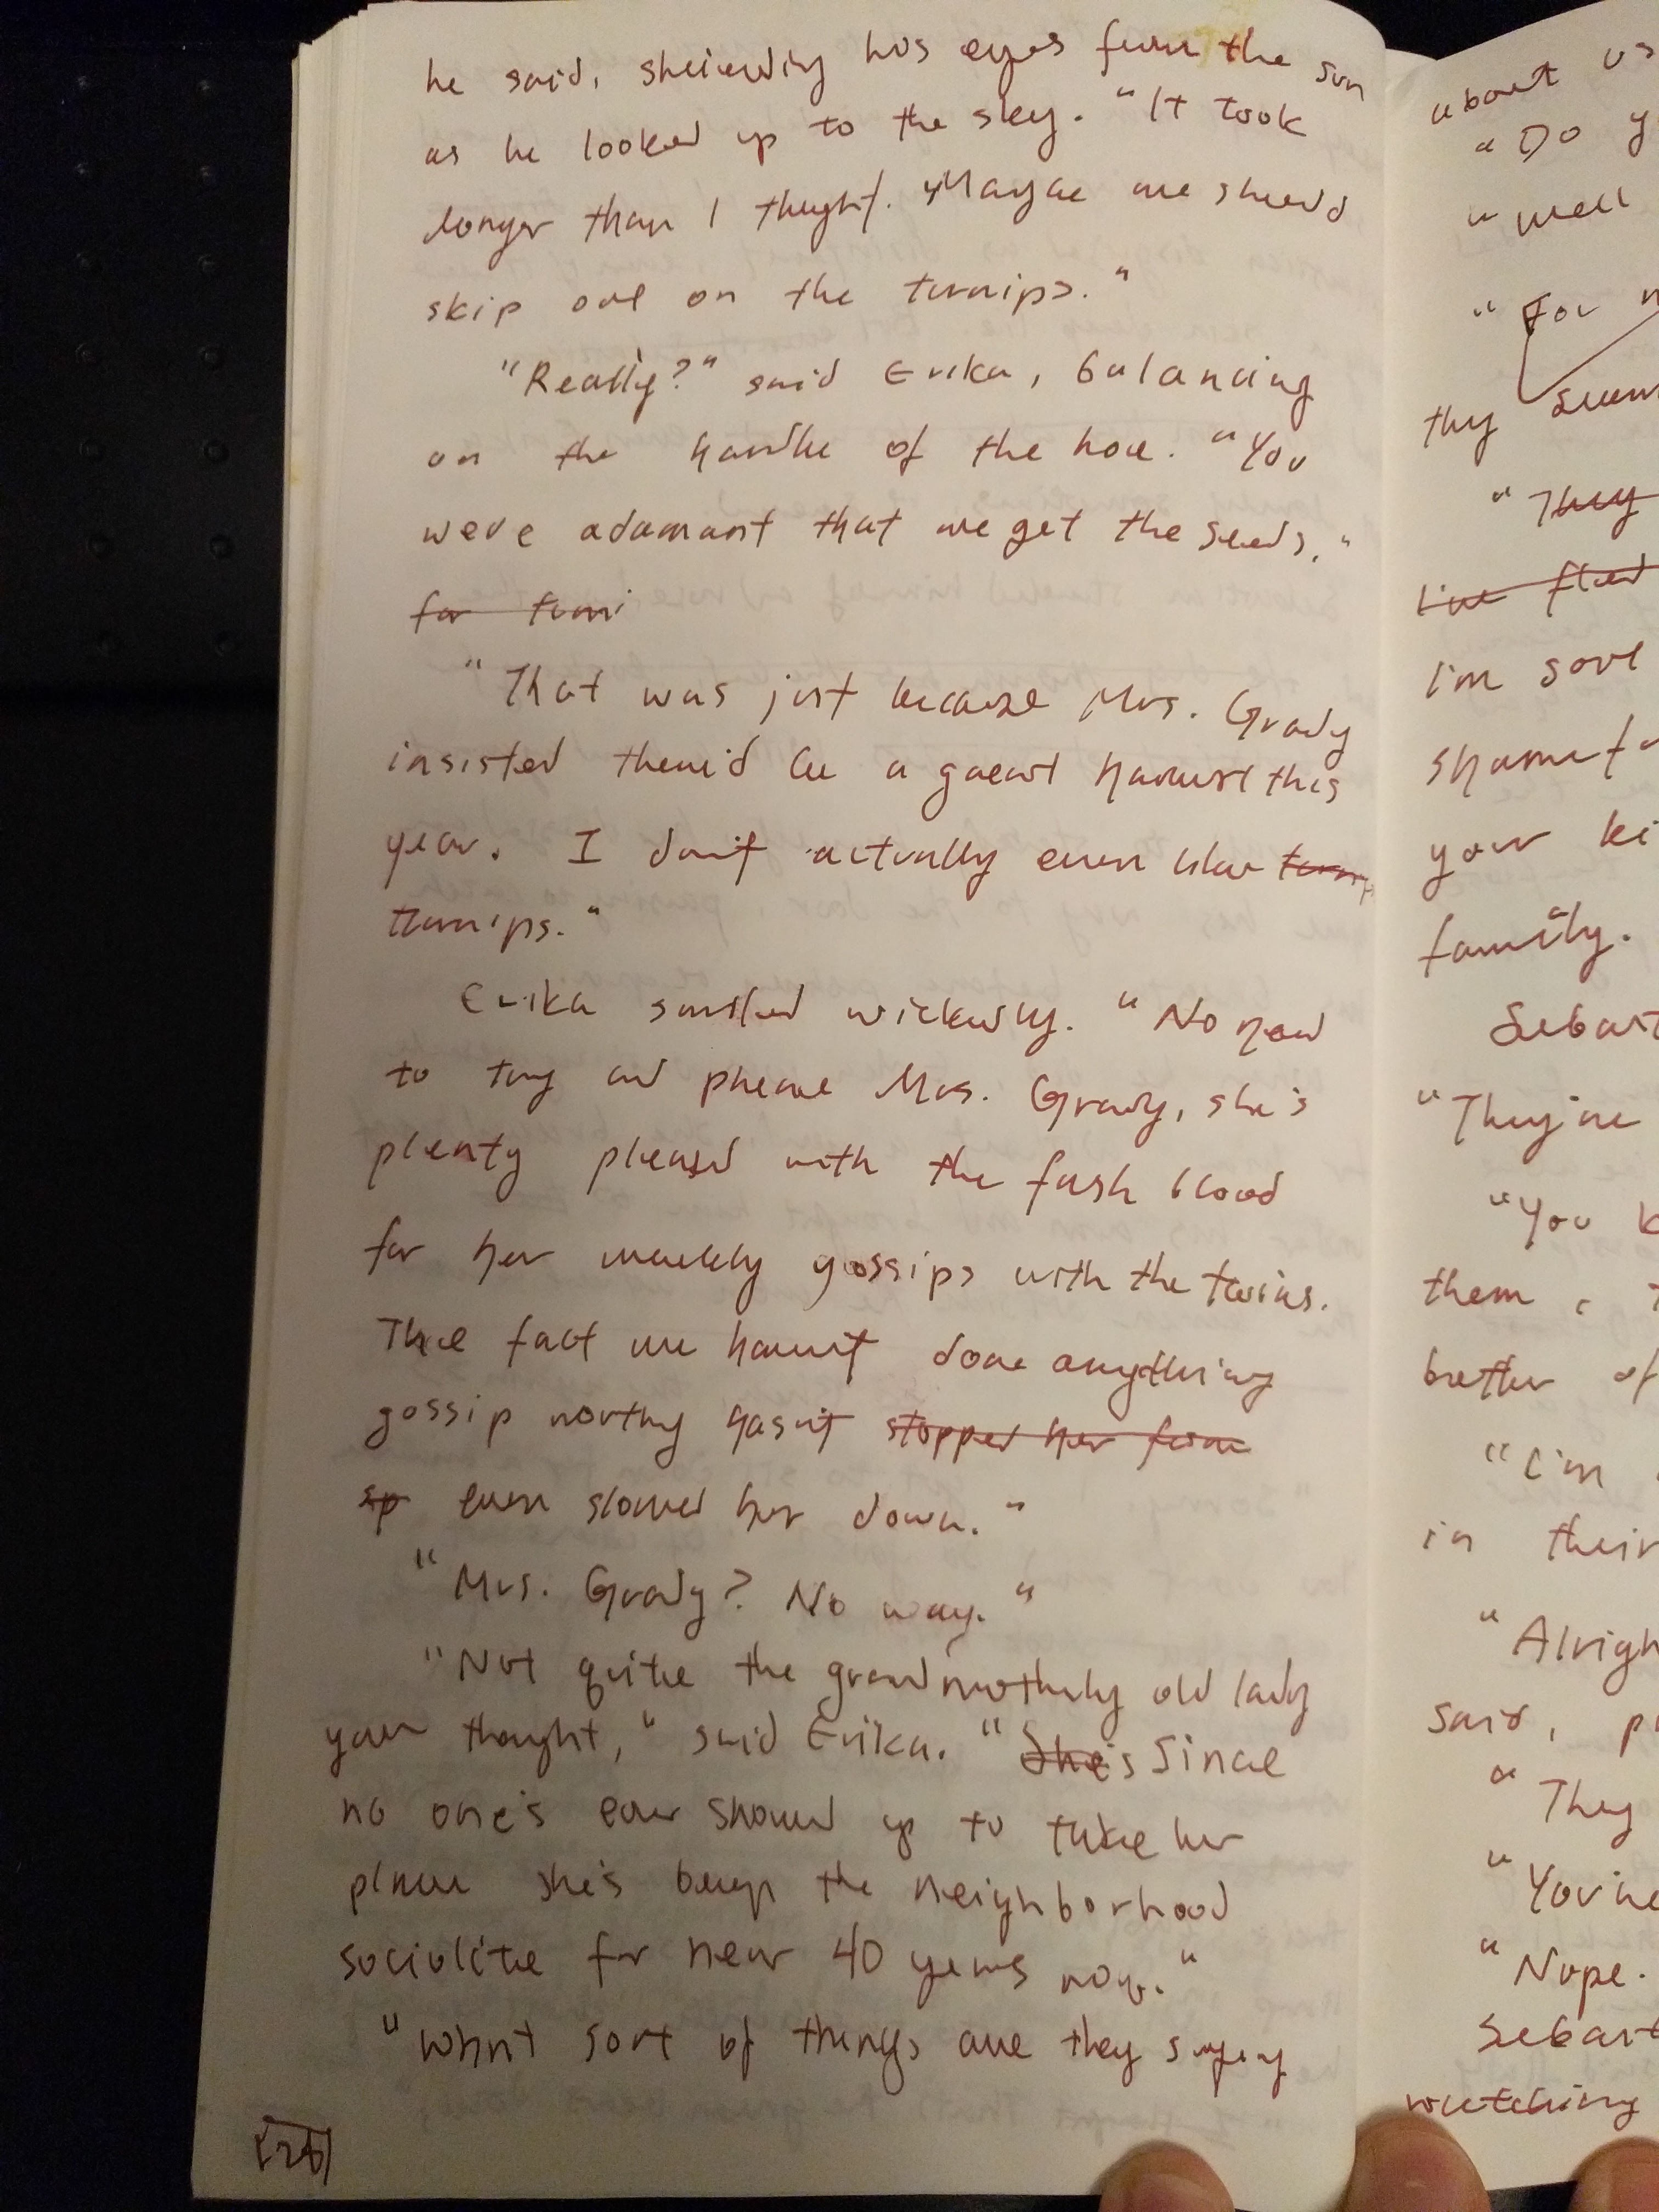 he said, sheielding his eyes from the sun
as he looked up to the sky. "It took
longer than I thught. Maybe we should
skip out on the turnips."
"Really?" said Erika, balancing
on the handle of the hoe. "You
were adamant that we get the seeds."
for turni
"That was just because Mrs. Grady
insisted there'd be a great harvest this
year. I don't actually even like turnip
turnips."
Erika smiled wickedly. "No need
to try and please Mrs. Grady, she's
plenty pleased with the fresh blood
for her weekly gossips with the twins.
The fact we haven't done anything
gossip worthy hasn't stopped her from
sp even slowed her down."
"Mrs. Grady? No way."
"Not quite the grandmotherly old lady
you thought," said Erika. "She's Since
no one's ever showed up to take her
place she's been the neighborhood
socialite for near 40 years now."
"What sort of things are they saying
26
about us
"Do y
"Well
"For
they seem
"They
live
I'm sove
shamef
your ki
family.
Sebast
"They're
"You k
them,
brother of
"I'm
in their
"Alrigh
said, p
"They
"You're
"Nope.
Sebast
watching